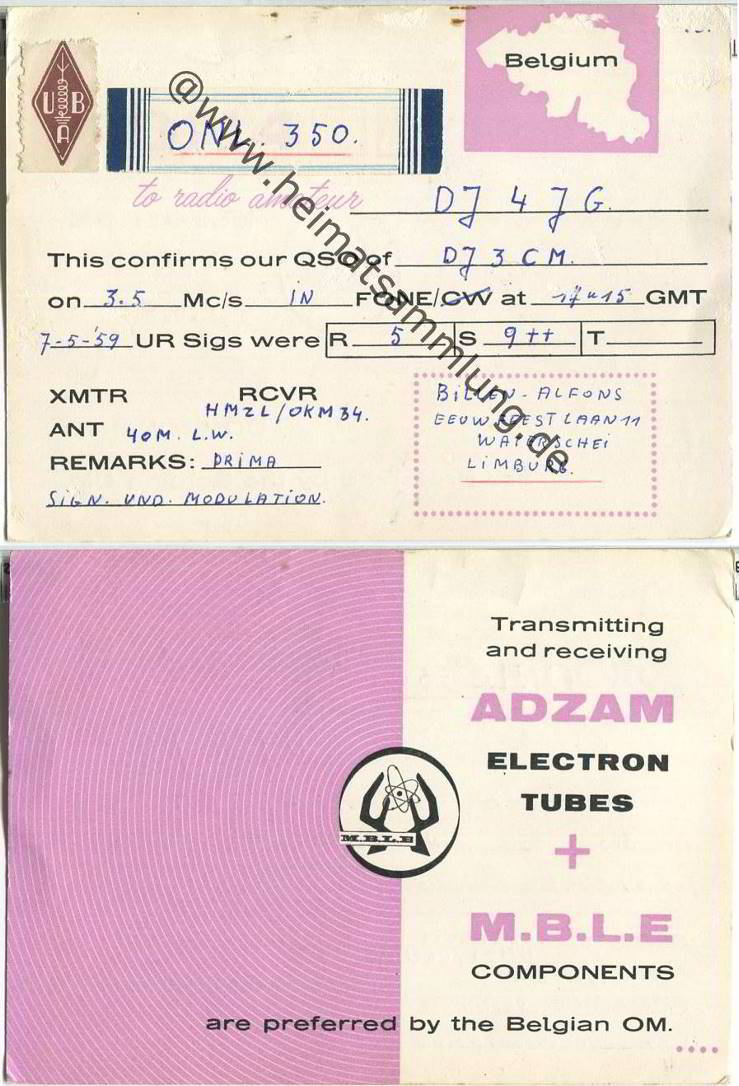 Belgium
UBA
ONL. 350.
to radio amateur DJ 4 JG.
This confirms our QSO of DJ 3 CM.
on 3.5 Mc/s IN FONE/CW at 17"15 GMT
7-5-'59 UR Sigs were R 5 S 9++ T
XMTR RCVR
HMZL/OKM34.
ANT 40M. L.W.
REMARKS: PRIMA
SIGN. UND. MODULATION.
ALFONS
EEUWFEESTLAAN 11
WATERSCHEI
LIMBURG.
@www.heimatsammlung.de
Transmitting
and receiving
ADZAM
ELECTRON
TUBES
+
M.B.L.E
M.B.L.E
COMPONENTS
are preferred by the Belgian OM.